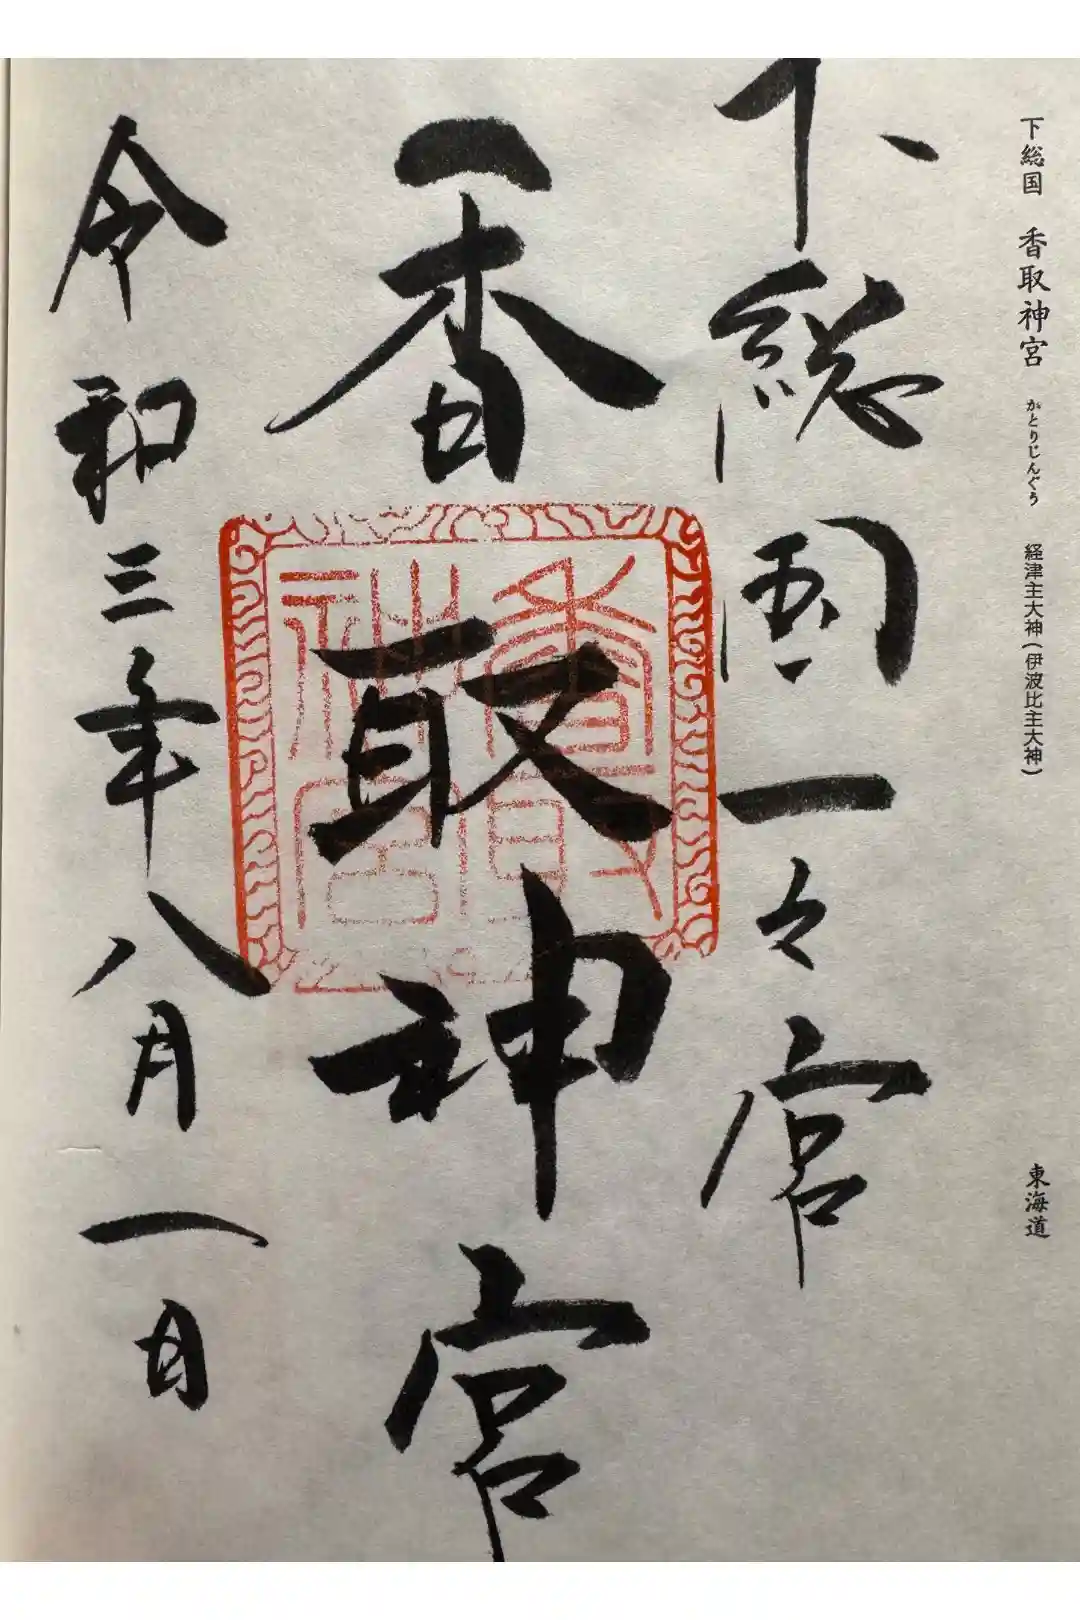 下総国 香取神宮 かとりじんぐう 経津主大神(伊波比主大神) 東海道
下総國一々宮
香取神宮
香取神宮
令和三年八月一日